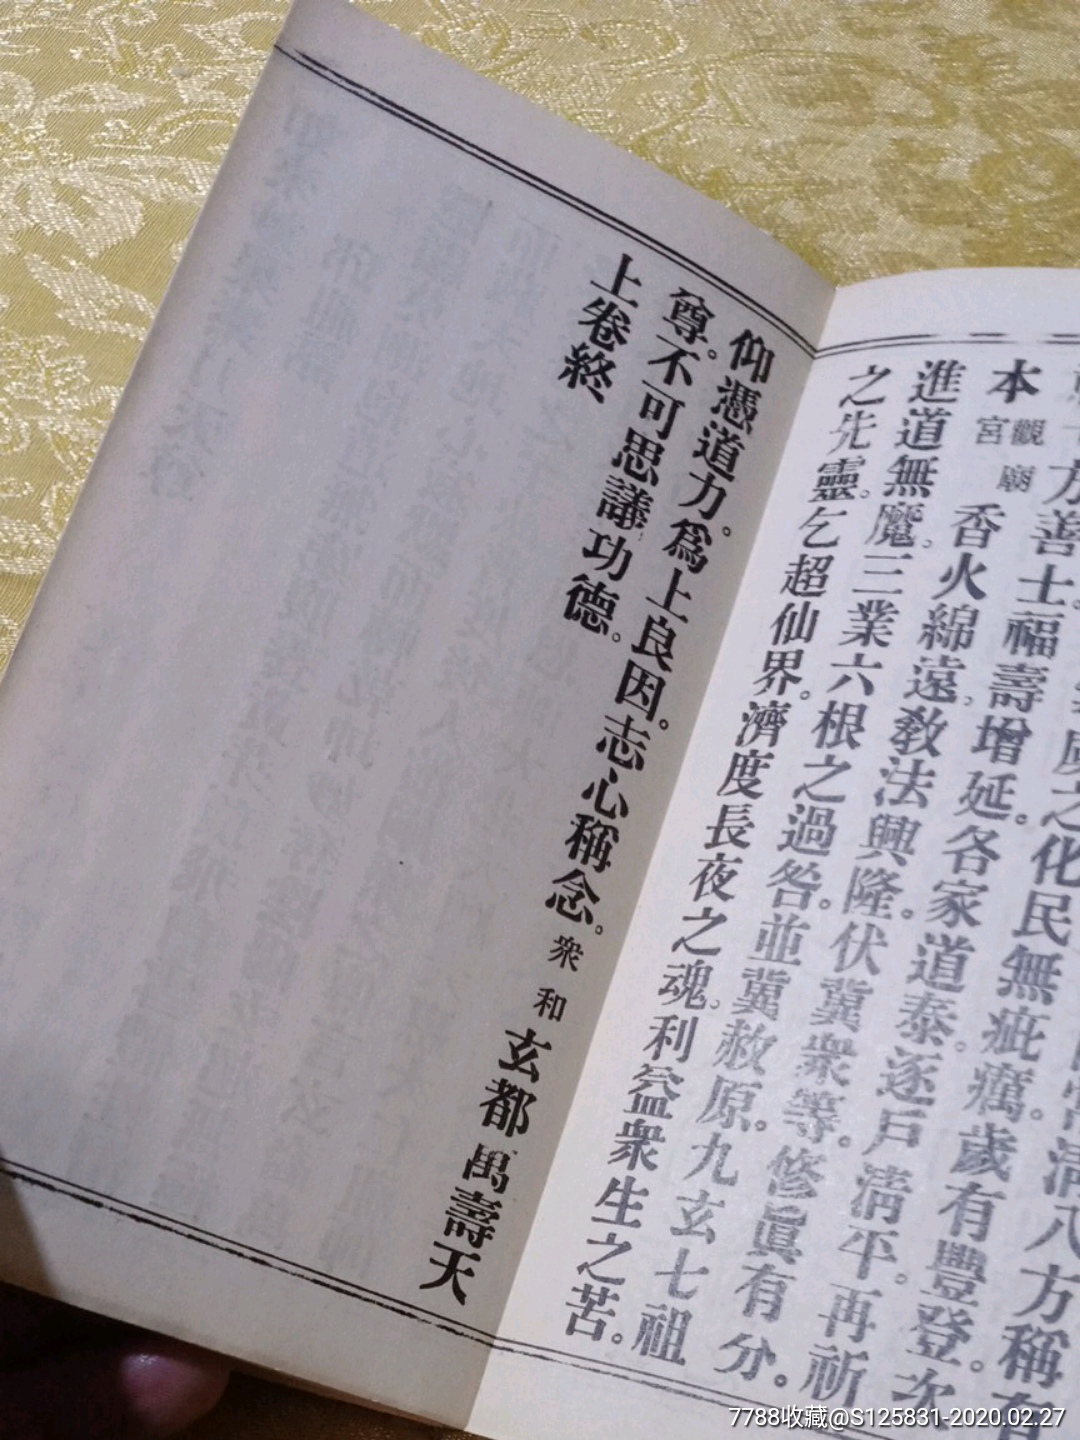 清八方稱有
之化民無疵癘。歲有豐登。次
方善士。福壽增延。各家道泰。逐戶清平。再祈
本觀宮廟香火綿遠。教法興隆。伏冀衆等。修眞有分。
進道無魔。三業六根之過咎。並冀赦原。九玄七祖
之先靈。乞超仙界。濟度長夜之魂。利益衆生之苦。
仰憑道力。爲上良因。志心稱念。衆和玄都萬壽天
尊。不可思議功德。
上卷終
7788收藏@S125831-2020.02.27